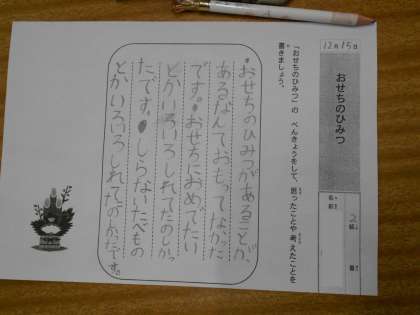 12月15日
おせちのひみつ
2組
番
名前
「おせちのひみつ」の べんきょうをして、思ったことや考えたことを
書きましょう。
おせちのひみつがあることが、
あるなんておもってなかった
です。おせちにおめでたい
とかいろいろしれてたのしかっ
たです。しらないたべもの
とかいろいろしれてたのしかったです。